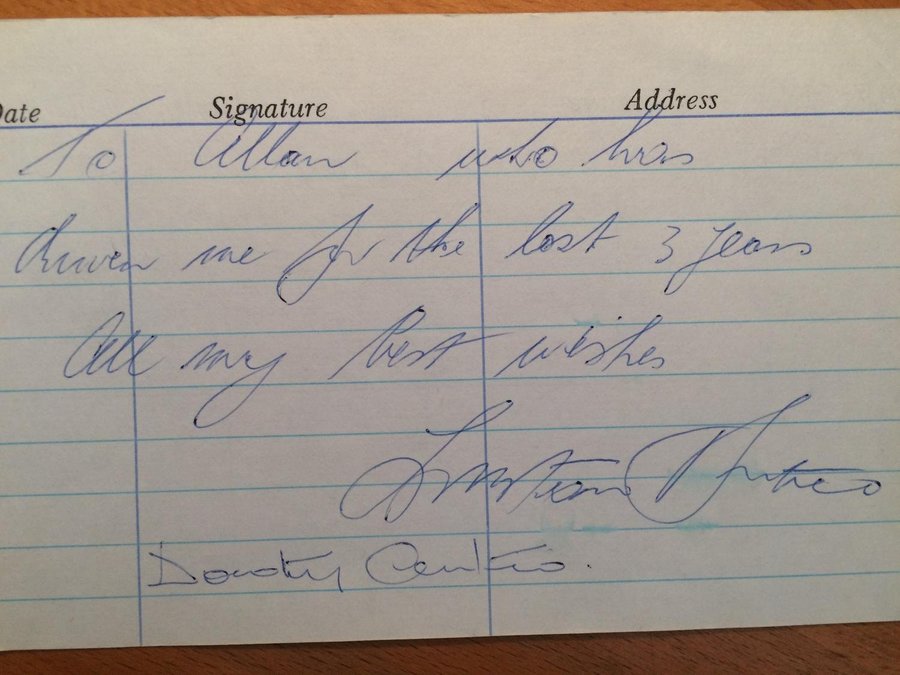 Date Signature Address
To Allan who has
driven me for the last 3 years
All my best wishes
Dorothy